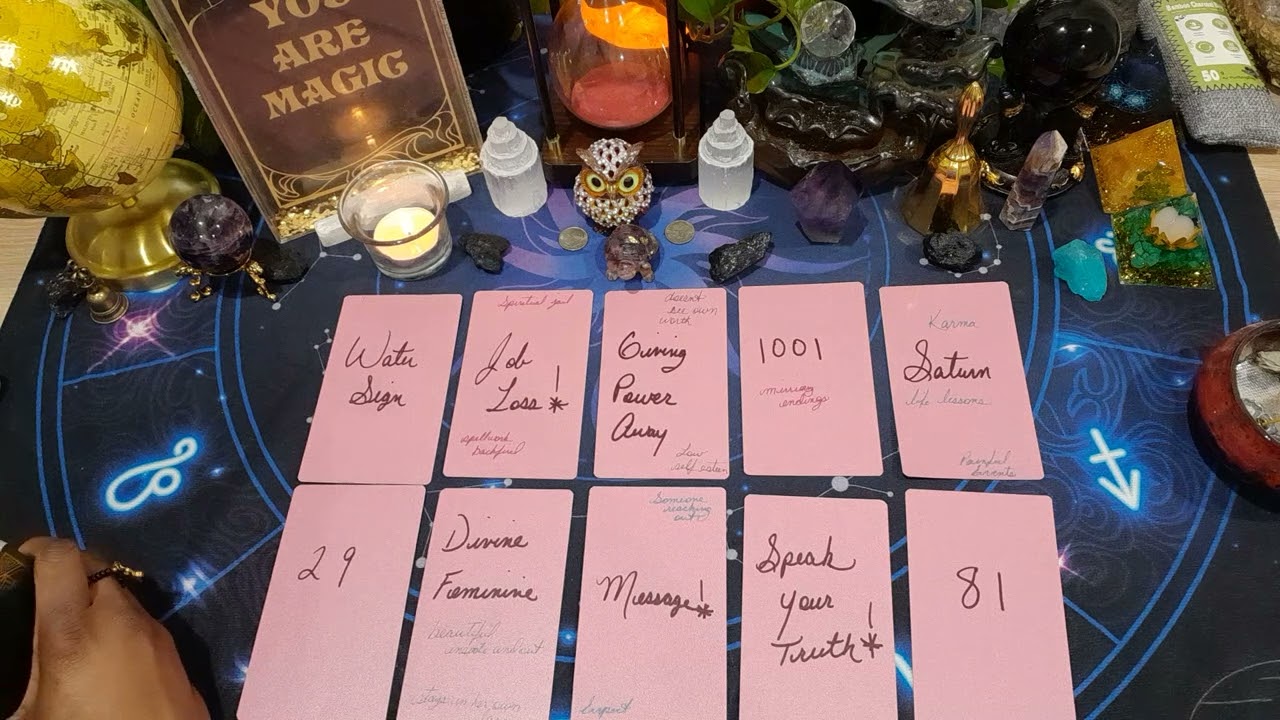 YOU
ARE
MAGIC
50
Water
Sign
Spiritual
Job
Loss! *
spellwork
backfired
doesn't
see own
worth
Giving
Power
Away
Low
self esteem
1001
endings
Karma
Saturn
life lessons
Parental
29
Divine
Feminine
beautiful
inside and out
stays in her own
Someone
reaching
out
Message! *
Serpent
Speak
your
Truth! *
81